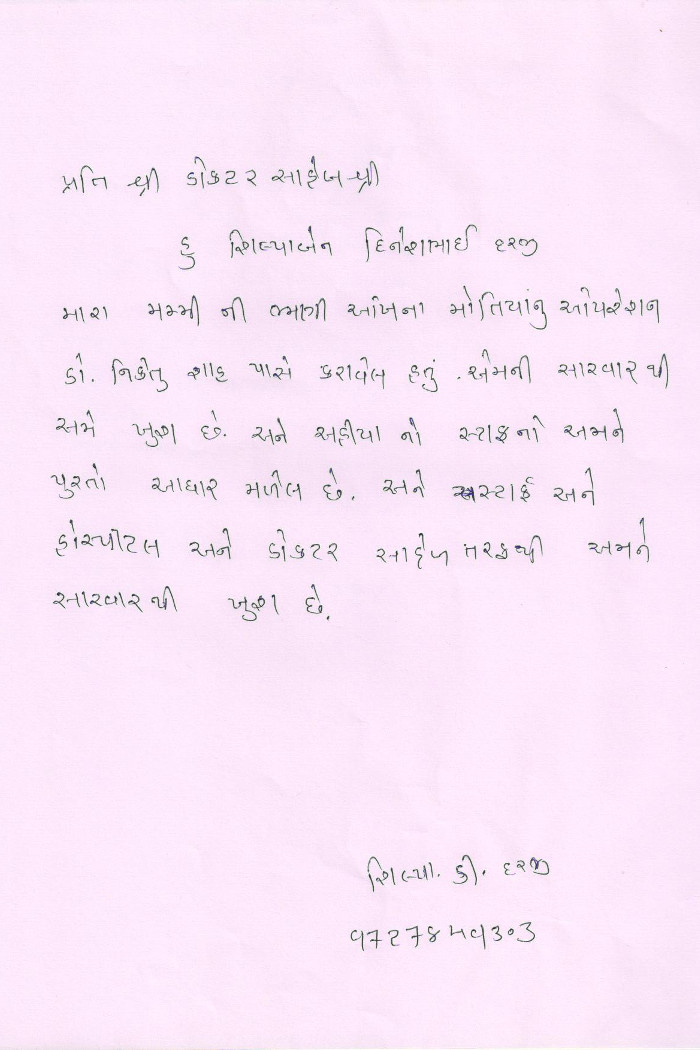 પ્રતિ શ્રી ડોક્ટર સાહેબશ્રી
હુ શિલ્પાબેન દિનેશભાઈ દરજી
મારા મમ્મી ની જમણી આંખના મોતિયાંનુ ઓપરેશન
ડો. નિકેતુ શાહ પાસે કરાવેલ હતું. એમની સારવાર થી
અમે ખુશ છે. અને અહીયા નો સ્ટાફનો અમને
પુરતો આધાર મળેલ છે. અને સ્ટાફ અને
હોસ્પીટલ અને ડોકટર સાહેબ તરફથી અમને
સારવાર થી ખુશ છે.
શિલ્પા. ડી. દરજી